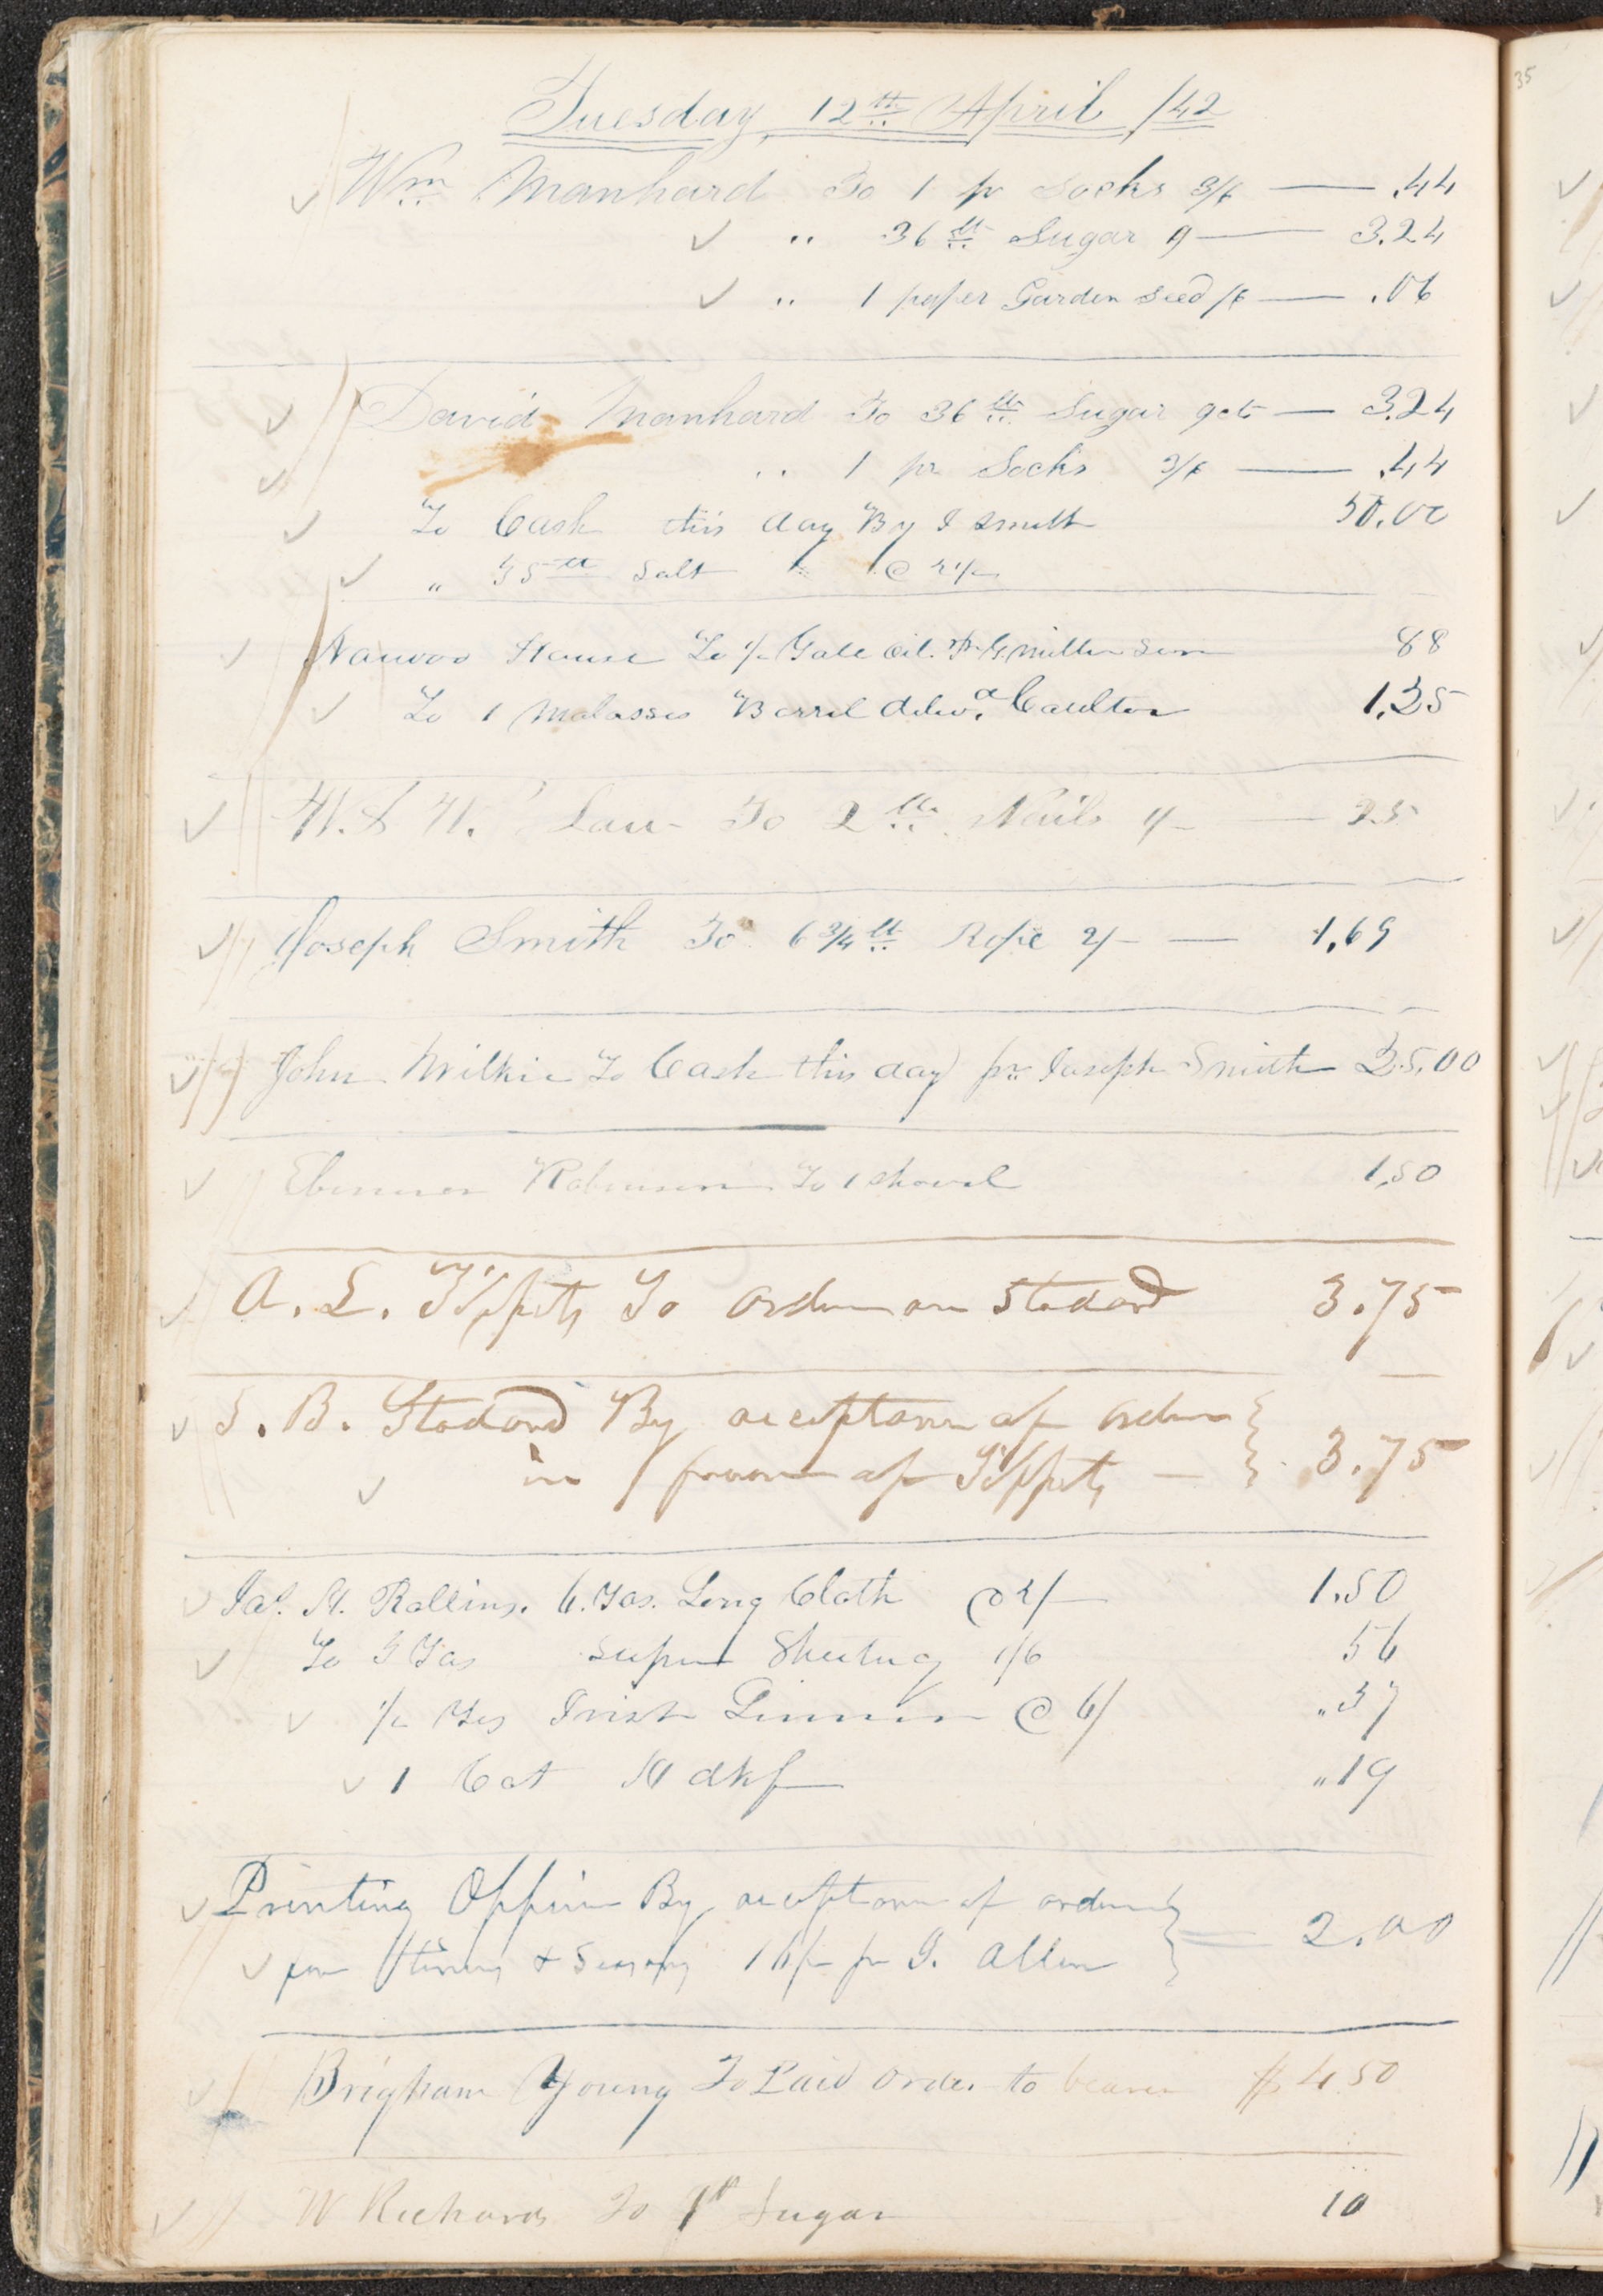 35
Tuesday, 12th April /42
Wm Manhard To 1 pr Socks 3/6 — .44
" 36 lb Sugar 9 — 3.24
" 1 paper Garden Seed /6 — .06
David Manhard To 36 lb Sugar 9cts — 3.24
" 1 pr Socks 3/6 — .44
To Cash this day By J Smith 50.00
" 35 lb Salt @ 
Nauvoo House To ½ Galł Oil. Pr G. Miller Son 88
To 1 Molasses Barrel delivd. Caulton 1.25
W. & W. Law To 2 lb Nails 1/- — 25
Joseph Smith To 6 3/4 lb Rope 2/- — 1.69
John Wilkie To Cash this day pr Joseph Smith 25.00
Ebenezer Robinson To 1 Shovel 1.50
A. L. Tippets To order on Stodard 3.75
S. B. Stodard By acceptance of order
in favor of Tippets — 3.75
Jas. H. Rollins. 6. Yds. Long Cloth @ 2/- 1.50
To 3 Yds Super Sheeting 1/6 56
½ Yds Irish Linnen @ 6/ "37
1 Cot Hdkf "19
Printing Office By acceptance of order
for Times & Seasons 16/- pr J. Allen = 2.00
Brigham Young To Paid Order to bearer $ 4.50
W Richards To 1 lb Sugar 10